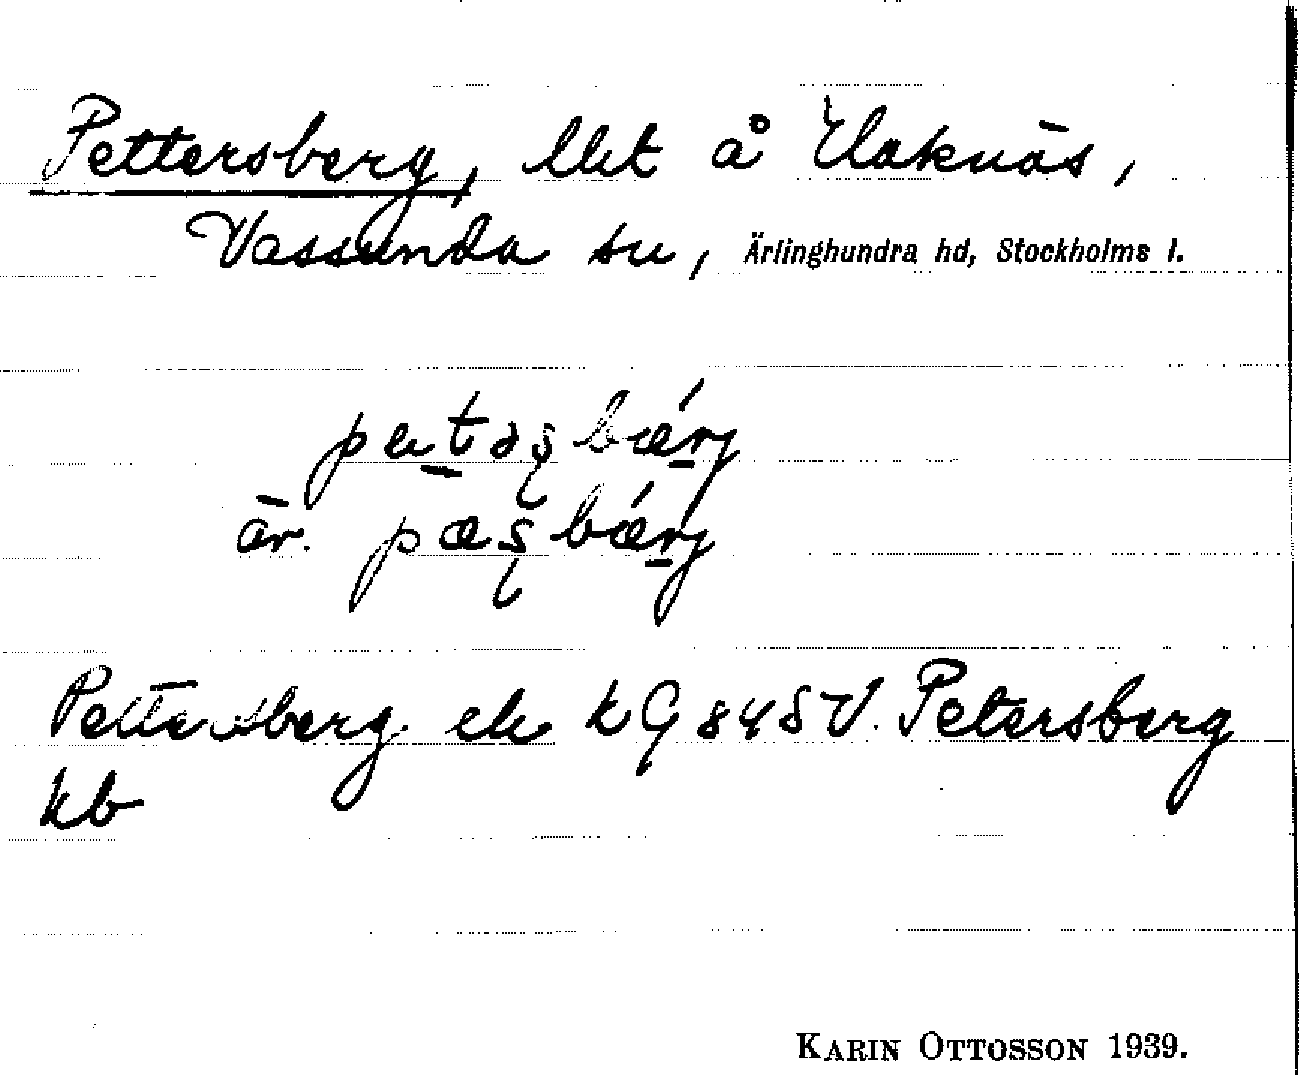 Pettersberg, llht å Eleknäs,
Vassunda sn, Ärlinghundra hd, Stockholms l.
pætəʂbǽrj
är. pæʂbǽrj
Pettersberg ek kG 845 V. Petersberg
kb
KARIN OTTOSSON 1939.